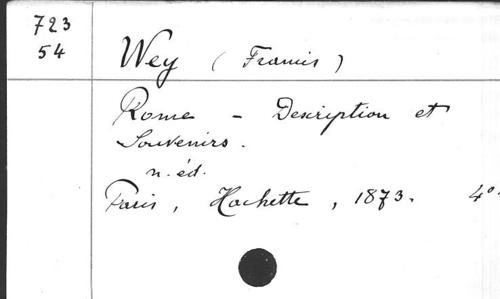 723
54
Wey (Francis)
Rome - Description et
Souvenirs.
n. éd.
Paris, Hachette, 1873. 4°.